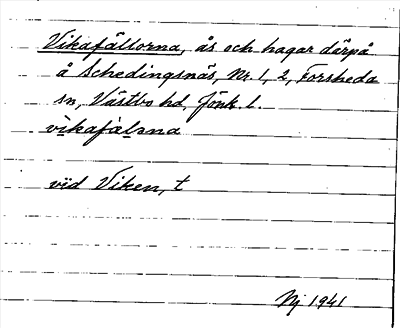 Vikafällorna, ås och hagar därpå
å Schedingsnäs, Nr. 1, 2, Forsheda
sn, Västbo hd, Jönk. l.
vikafàlṣna
vid Viken, t
Nj 1941